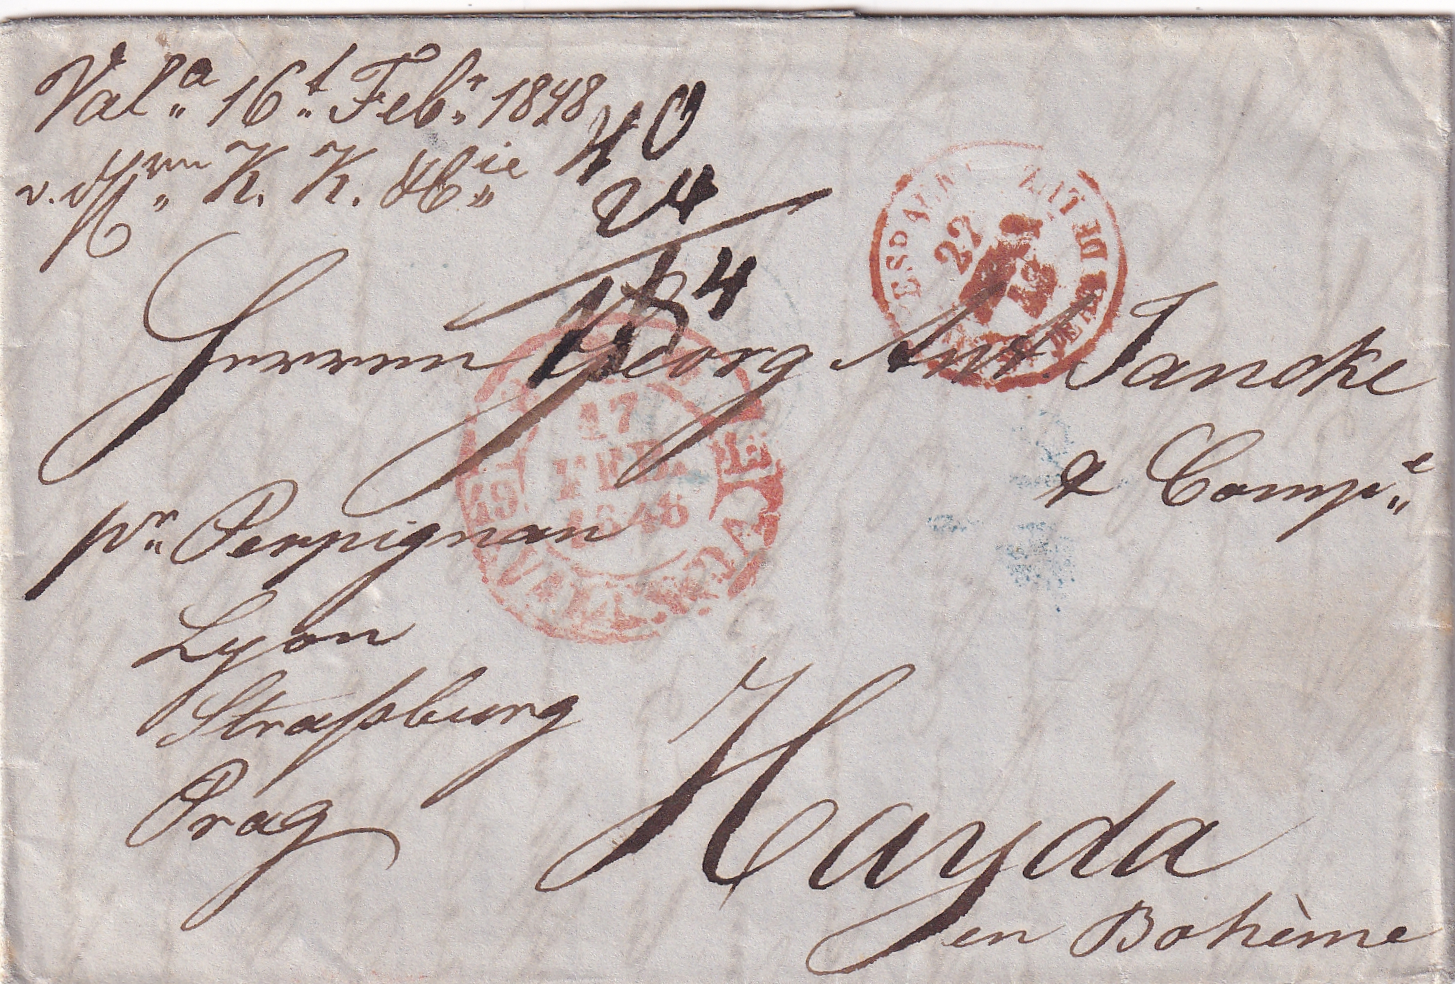 Val.ª 16.t Feb.r 1848
K. K. & C.ie
40
24
1 f 4
Herren Georg Ant Jancke
& Comp.e
pr. Perpignan
Lyon
Straßburg
Prag
Hayda
en Bohème
22
17
FEB.
1848
VALENCIA